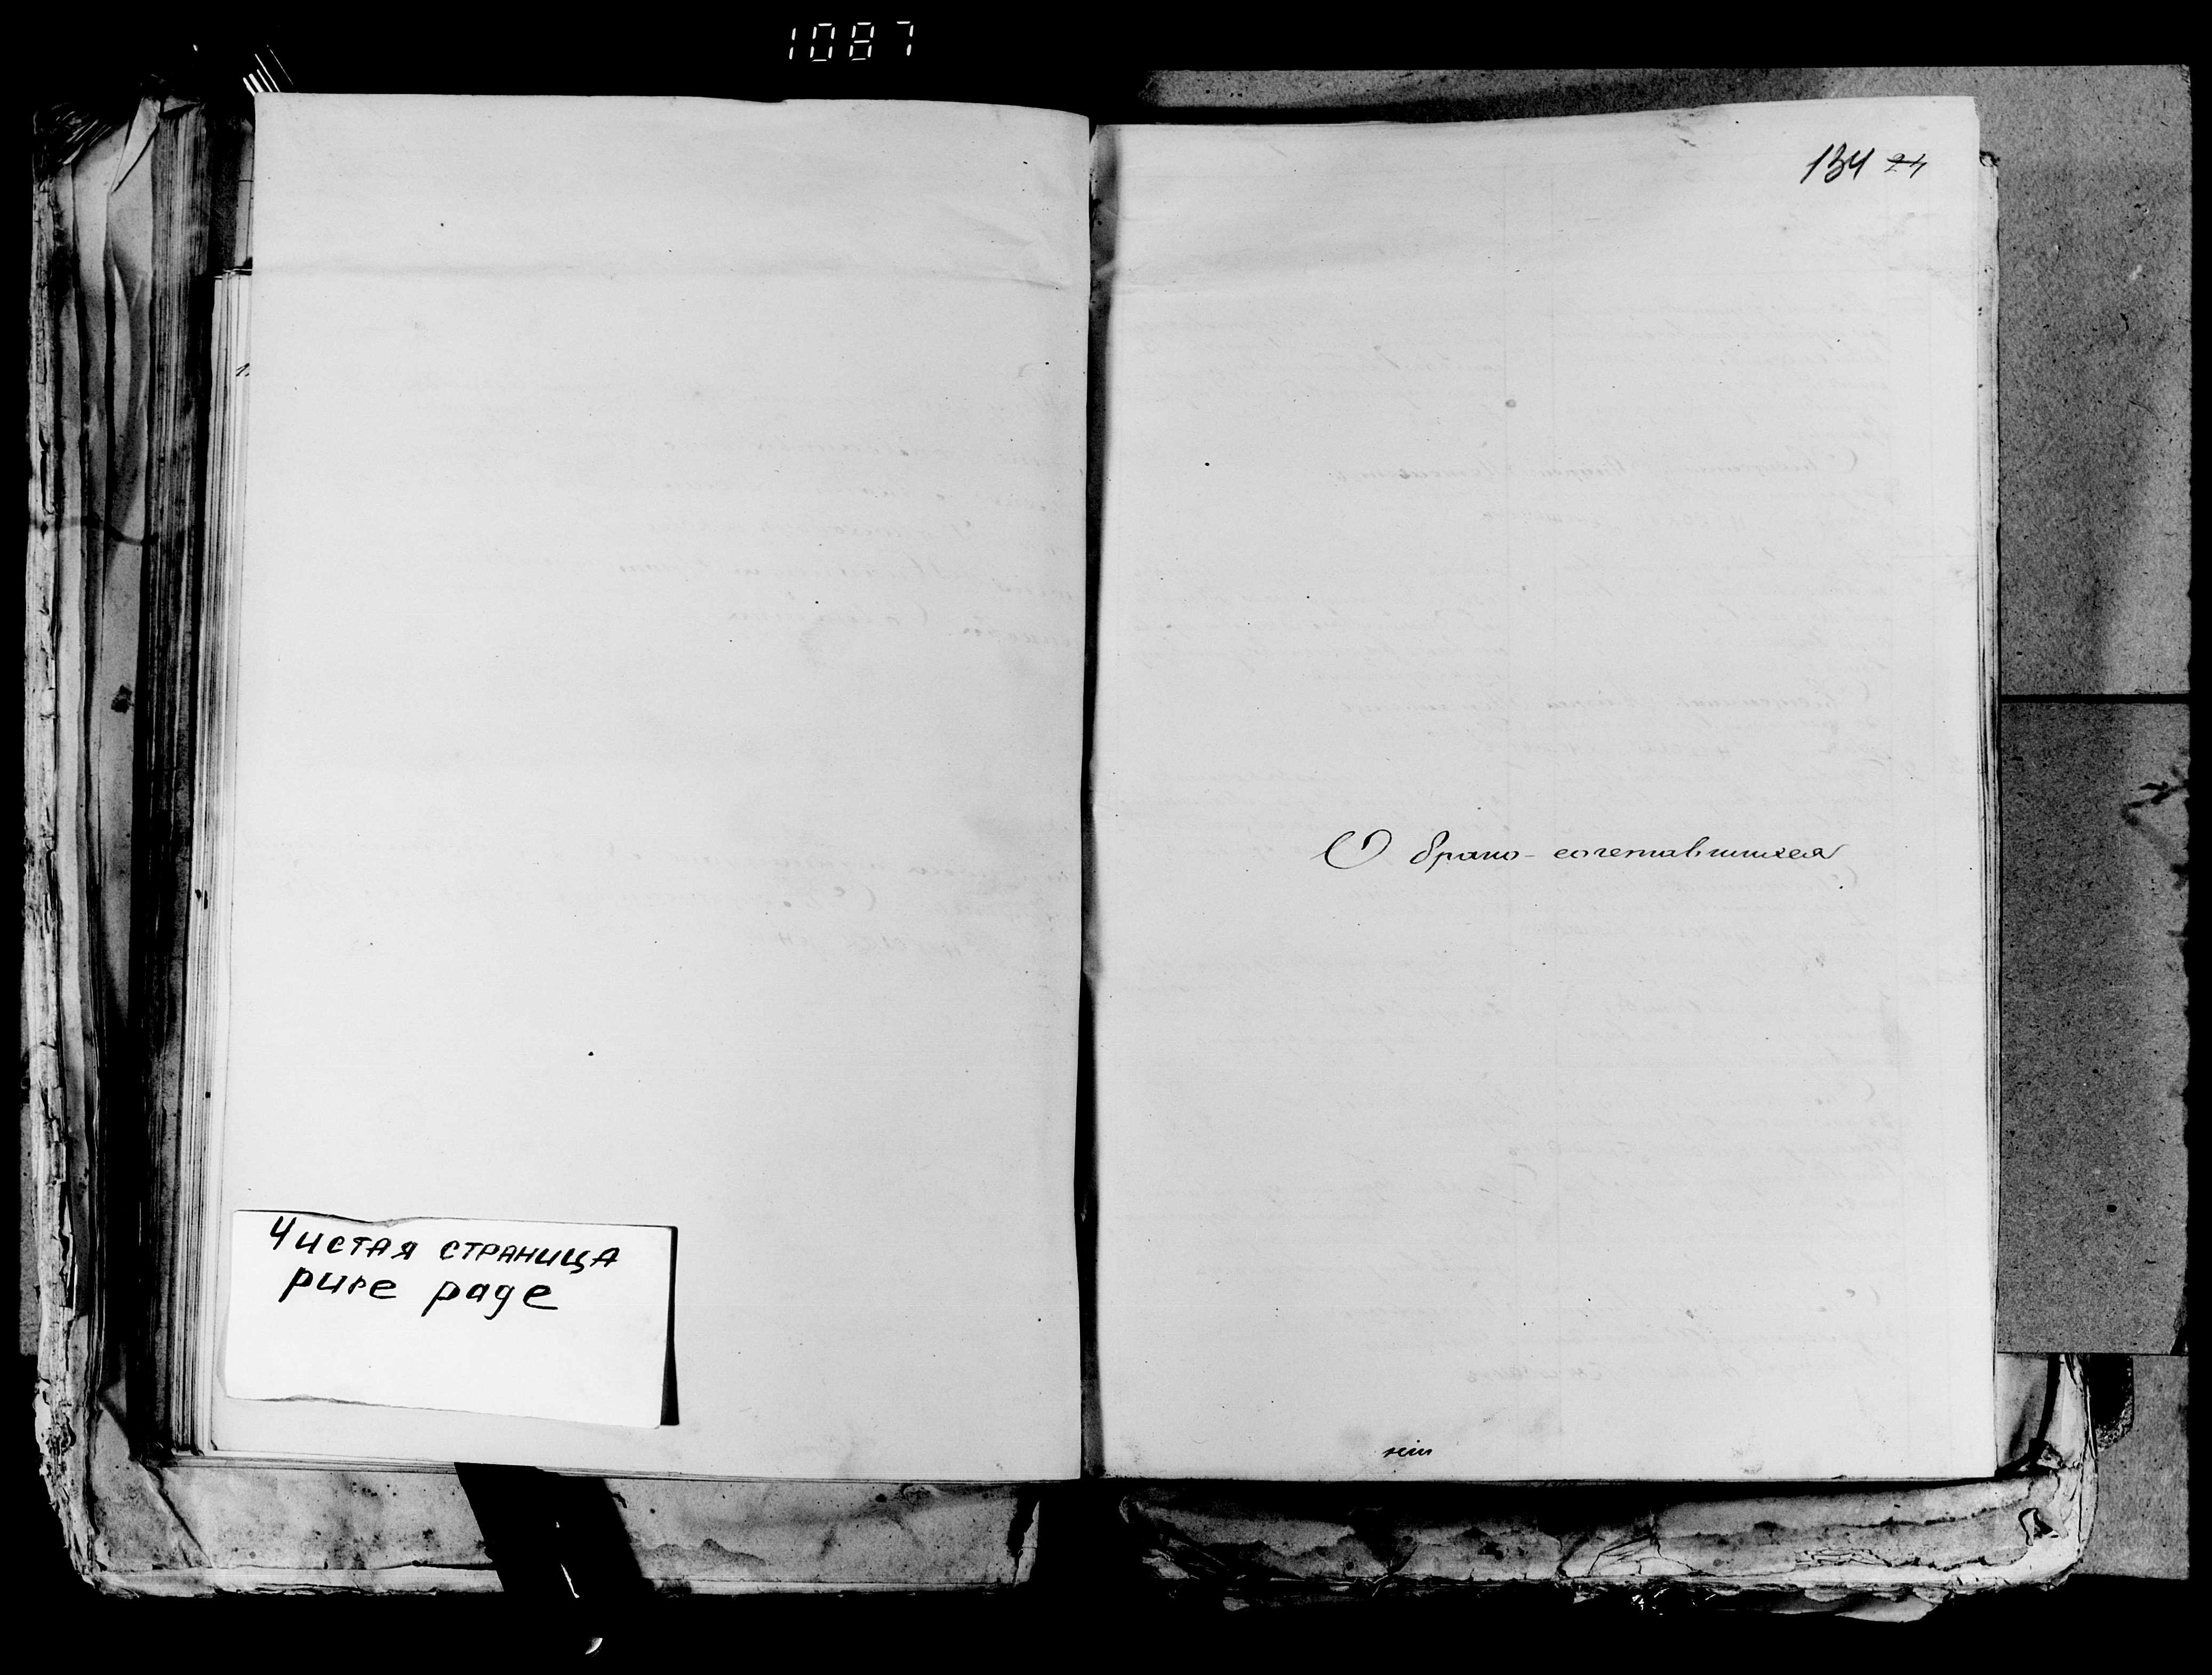 1087
134 24
О брако-сочетавшихся
Чистая страница
pure page